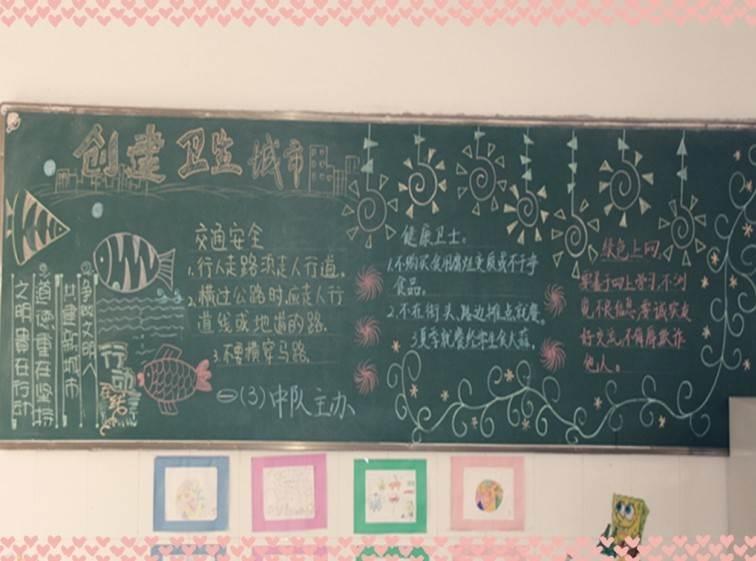 创建卫生城市
交通安全
1.行人走路须走人行道。
2.横过公路时,应走人行
道线或地道的路.
3.不要横穿马路.
一(3)中队主办
健康卫士:
1.不购买食用腐烂变质或不干净
食品。
2.不在街头、路边摊点就餐。
绿色上网
要善于网上学习,不浏
览不良信息,要诚实友
好交流,不侮辱欺诈
他人。
争做文明人
共建新城市
道德重在坚持
文明贵在行动
行动